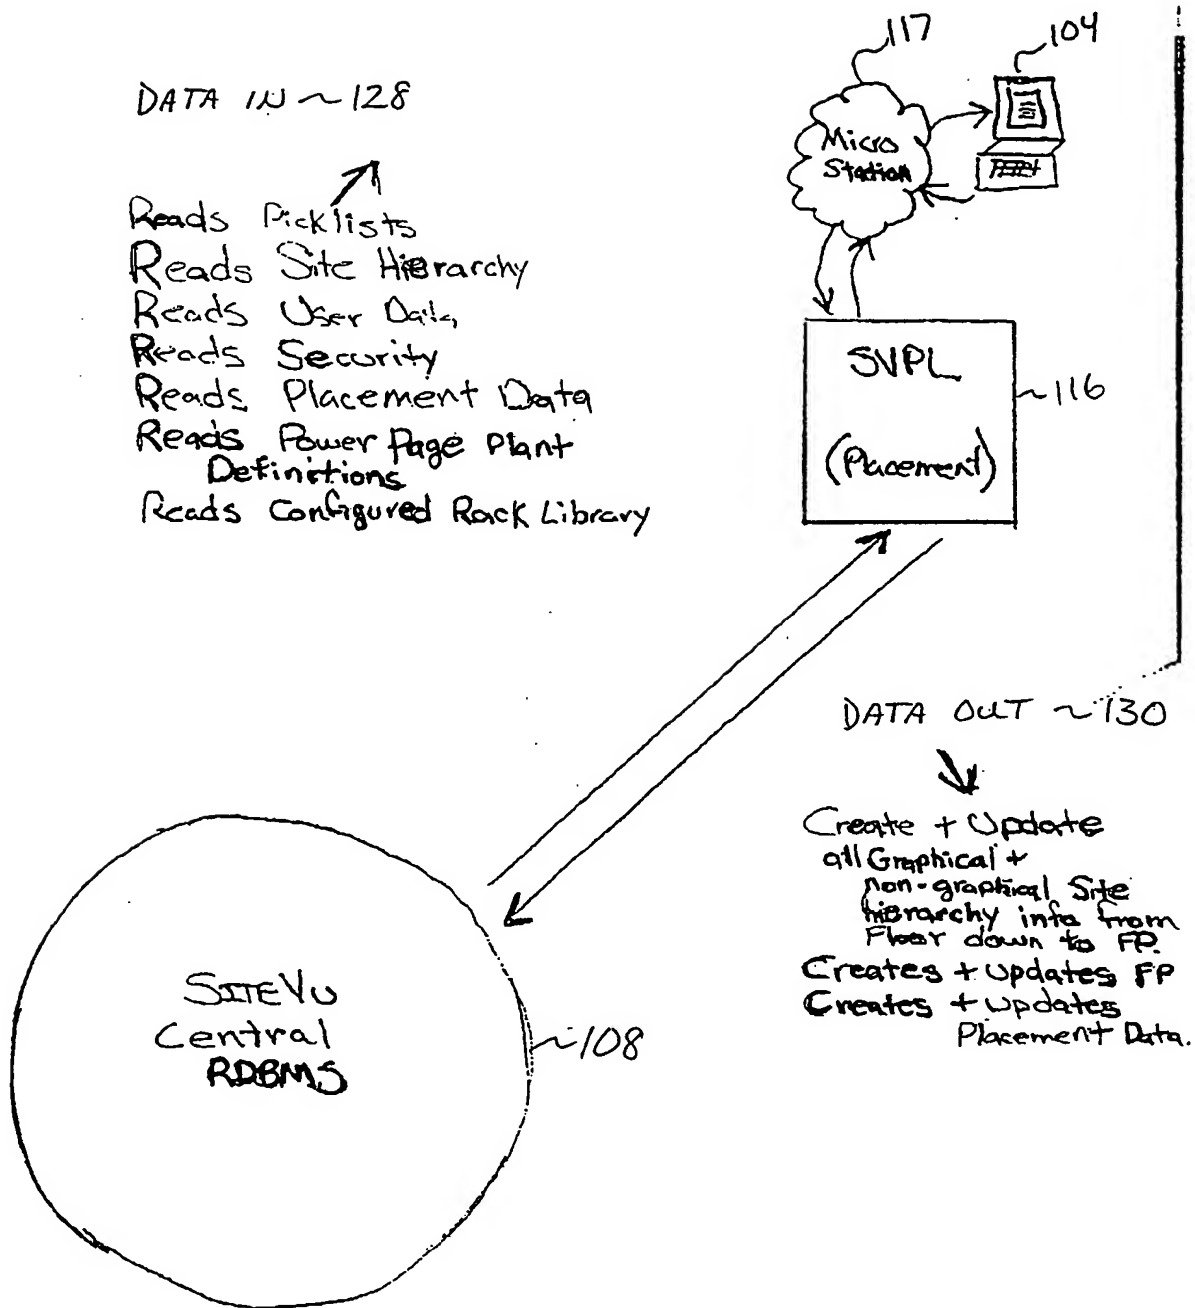 117
104
DATA IN ~ 128
Micro
Station
Reads Picklists
Reads Site Hierarchy
Reads User Data
Reads Security
Reads Placement Data
Reads Power Page Plant
Definitions
Reads Configured Rack Library
SVPL
(Placement)
~116
DATA OUT ~ 130
Create + Update
all Graphical +
non-graphical Site
hierarchy info from
Floor down to FP.
Creates + updates FP
Creates + updates
Placement Data.
SITEVU
Central
RDBMS
~108